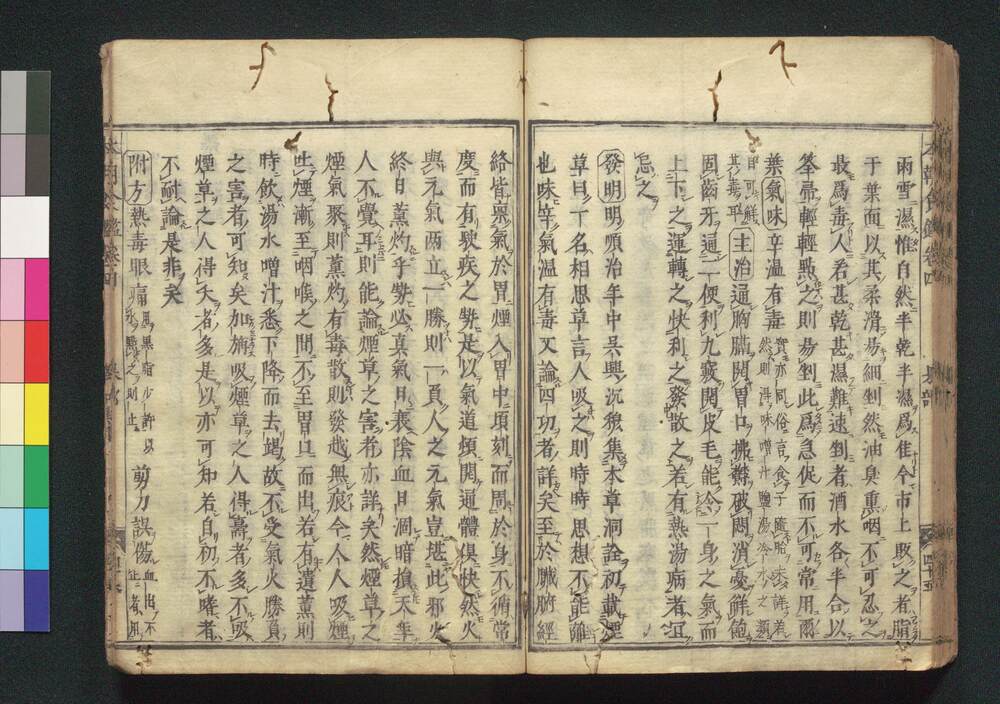 雨雪濕惟自然半乾半濕爲佳今市上販之者脂
于葉面以其柔滑易細剉然油臭熏咽不可忍之
最爲毒人若甚乾甚濕難速剉者酒水各半合以
筆帚輕輕點之則易剉此爲急促而不可常用爾
葉氣味辛温有毒
主治通胸膈開胃口擴鬱破悶消憂解飽
固齒牙通二便利九竅開皮毛能令一身之氣而
上下之運轉之快利之發散之若有熱湯病者冝
忌之
發明明順治年中呉興沈穆集本草洞詮初載煙
草曰一名相思草言人吸之則時時思想不能離
也味辛氣温有毒又論四功者詳矣至於臟腑經
絡皆稟氣於胃煙入胃中頃刻而周於身不循常
度而有駛疾之勢是以氣道頓開通體俱快然火
與元氣兩立一勝則一負人之元氣豈堪此邪火
終日薫灼乎勢必真氣日衰陰血日涸暗損天年
人不覺耳則能論煙草之害者亦詳矣然煙草之
煙氣聚則薫灼有毒散則發越無痕今人人吸煙
吐煙漸至咽喉之間不至胃口而出若有遺薫則
時飮湯水噌汁悉下降而去竭故不受氣火勝負
之害者可知矣加旃吸煙草之人得壽者多不吸
煙草之人得夭者多是以亦可知若自初不嗜者
不耐論是非矣
附方熱毒眼痛
剪刀誤傷血出不止者用